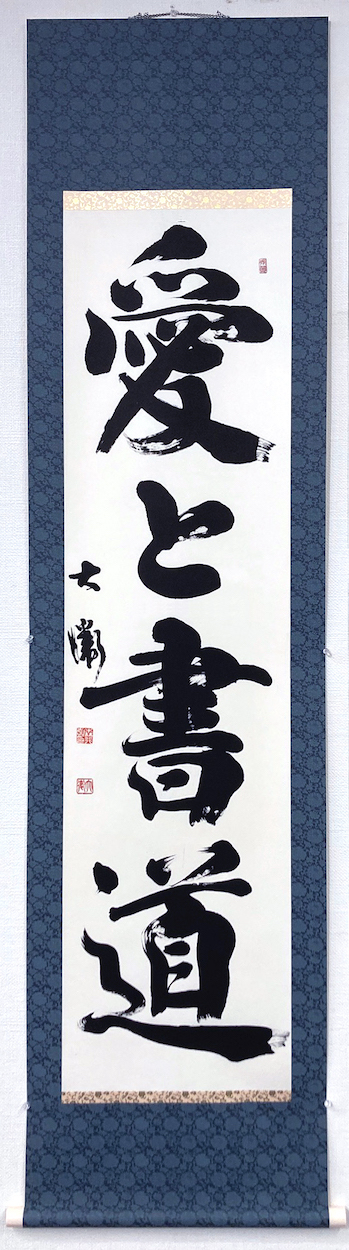 愛と書道
大